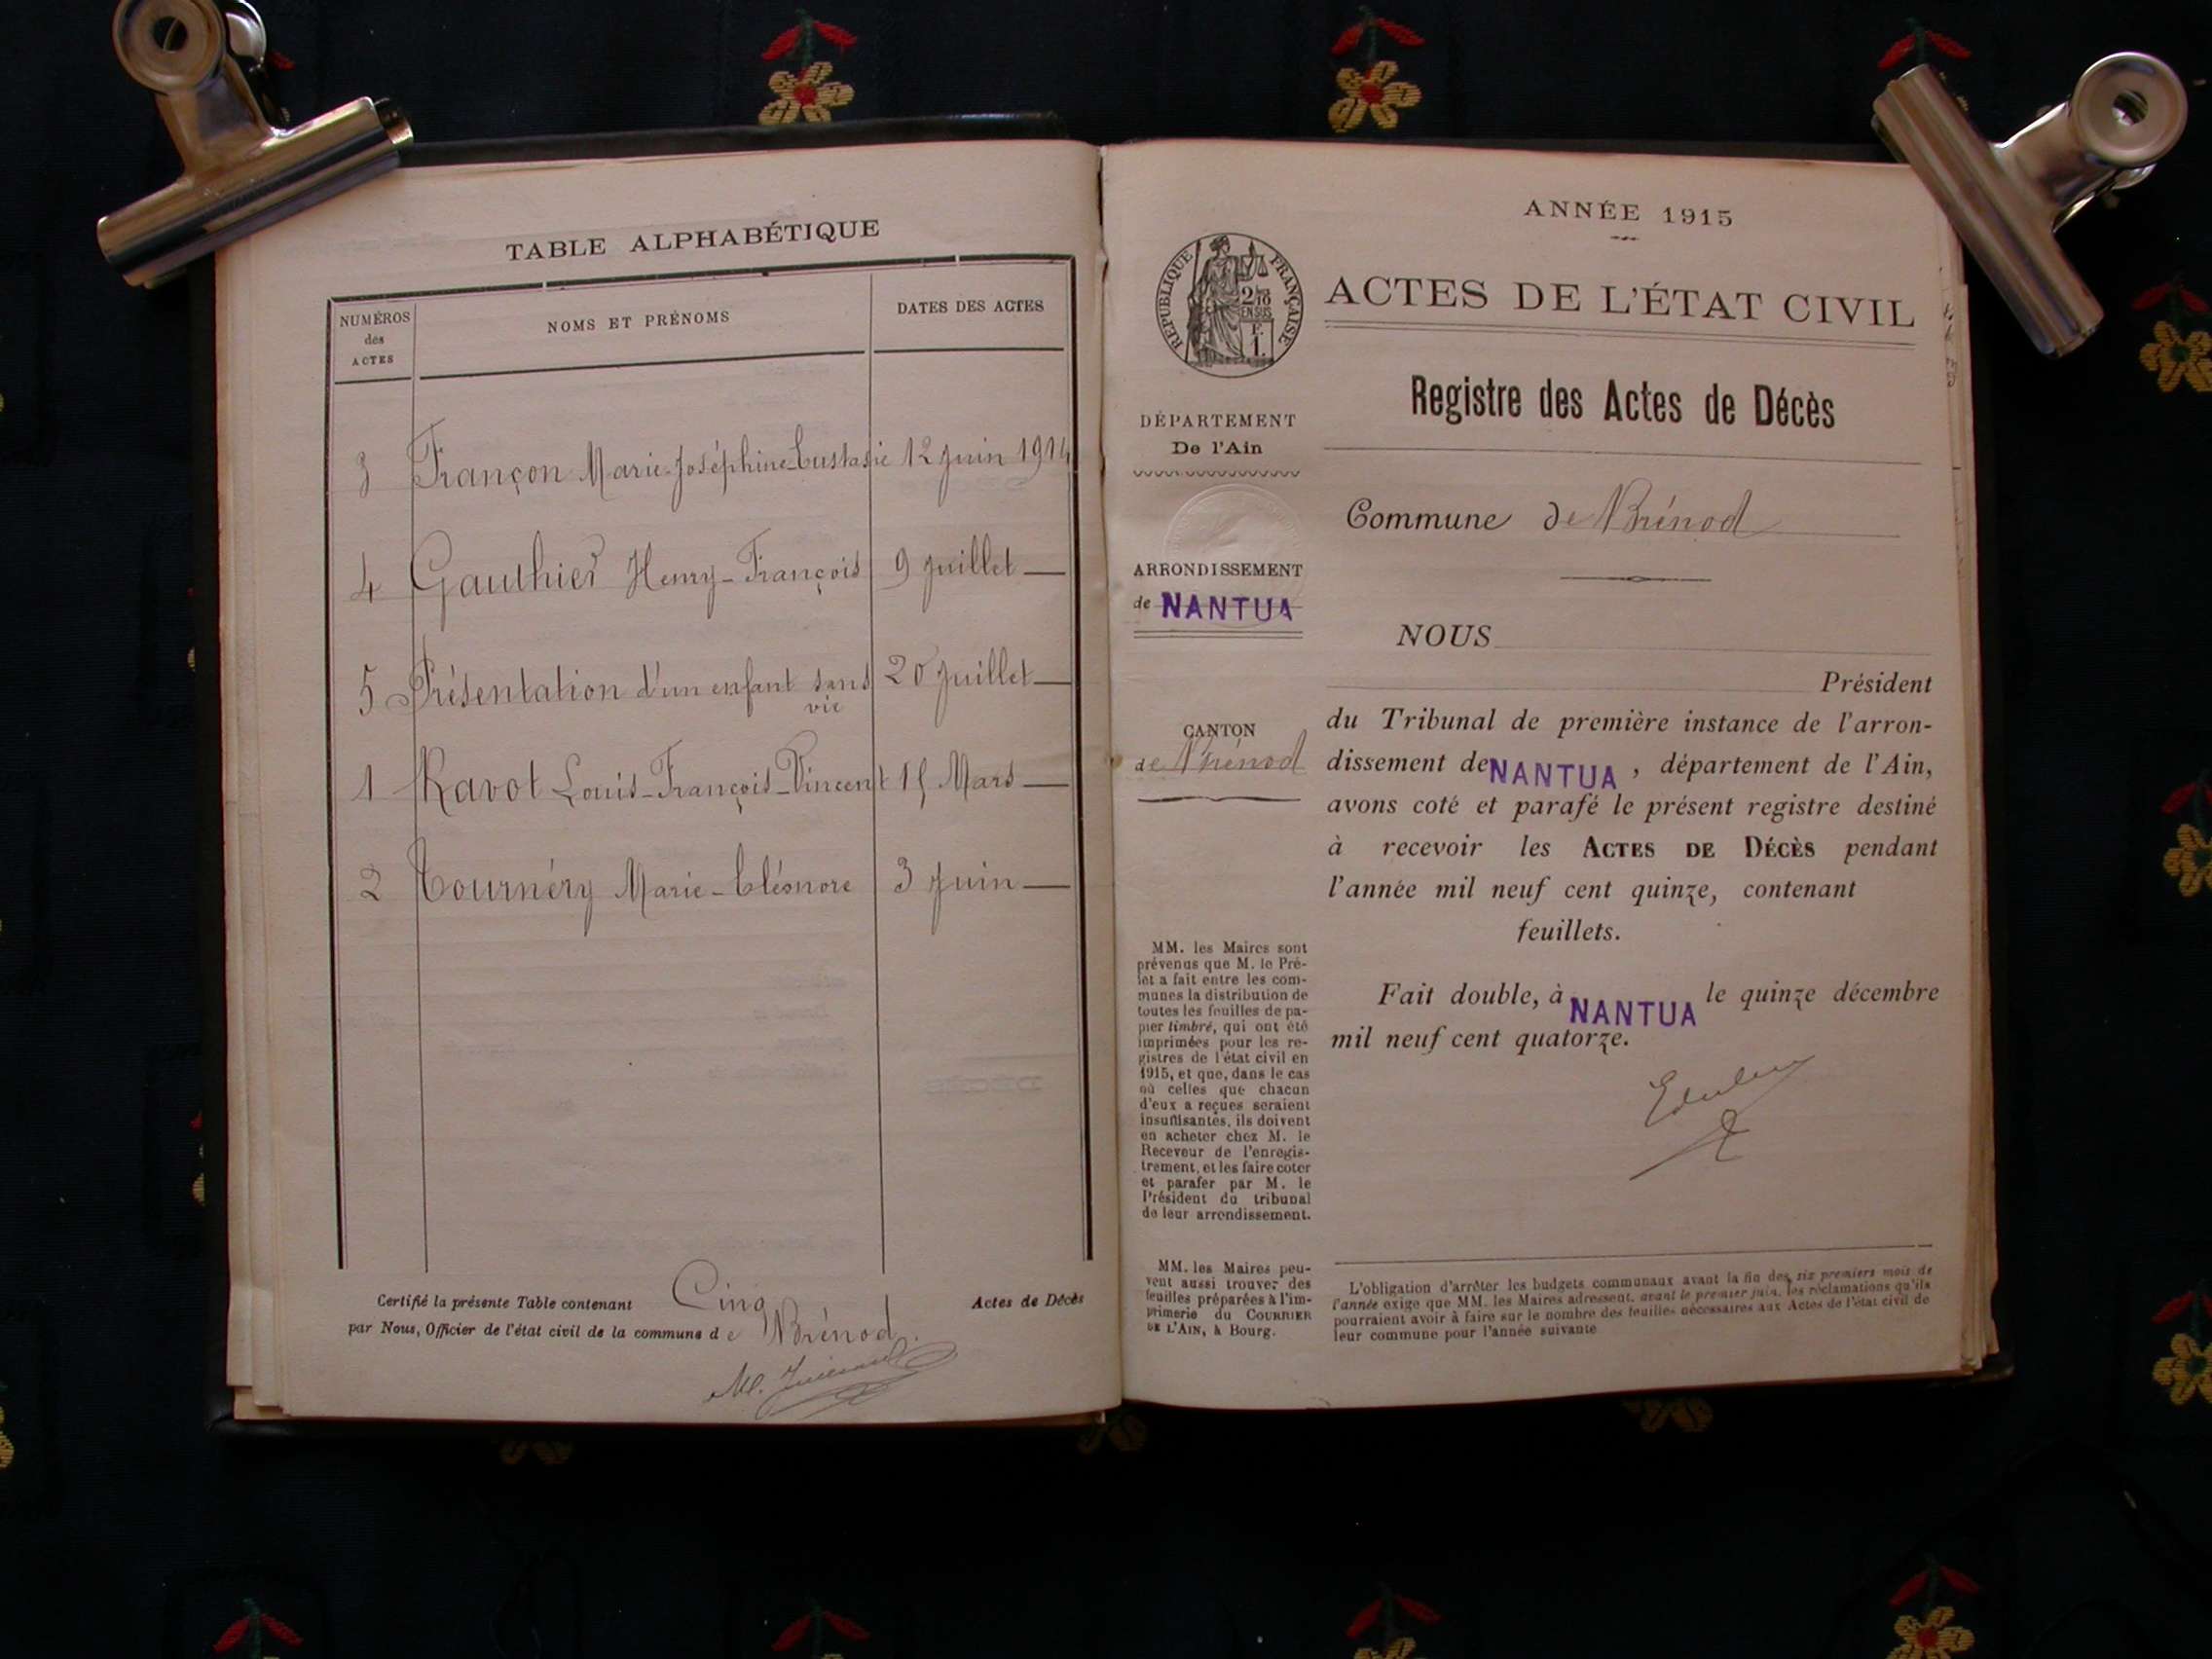 TABLE ALPHABÉTIQUE
NUMÉROS
des
ACTES
NOMS ET PRÉNOMS
DATES DES ACTES
3 Françon Marie-Joséphine-Eustasie 12 juin 1914
4 Gauthier Henry-François 9 juillet —
5 Présentation d'un enfant sans 20 juillet —
vie
1 Ravot Louis-François-Vincent 15 Mars —
2 Tournéry Marie-Eléonore 3 juin —
Certifié la présente Table contenant Cinq Actes de Décès
par Nous, Officier de l'état civil de la commune de Brénod.
ANNÉE 1915
RÉPUBLIQUE FRANÇAISE
2/10
EN SUS
F.
1.
ACTES DE L'ÉTAT CIVIL
Registre des Actes de Décès
DÉPARTEMENT
De l'Ain
Commune de Brénod
ARRONDISSEMENT
de NANTUA
CANTON
de Brénod
NOUS
Président
du Tribunal de première instance de l'arron-
dissement de NANTUA, département de l'Ain,
avons coté et parafé le présent registre destiné
à recevoir les ACTES DE DÉCÈS pendant
l'année mil neuf cent quinze, contenant
feuillets.
Fait double, à NANTUA le quinze décembre
mil neuf cent quatorze.
MM. les Maires sont
prévenus que M. le Pré-
fet a fait entre les com-
munes la distribution de
toutes les feuilles de pa-
pier timbré, qui ont été
imprimées pour les re-
gistres de l'état civil en
1915, et que, dans le cas
où celles que chacun
d'eux a reçues seraient
insuffisantes, ils doivent
en acheter chez M. le
Receveur de l'enregis-
trement, et les faire coter
et parafer par M. le
Président du tribunal
de leur arrondissement.
MM. les Maires peu-
vent aussi trouver des
feuilles préparées à l'im-
primerie du COURRIER
DE L'AIN, à Bourg.
L'obligation d'arrêter les budgets communaux avant la fin des six premiers mois de
l'année exige que MM. les Maires adressent, avant le premier juin, les réclamations qu'ils
pourraient avoir à faire sur le nombre des feuilles nécessaires aux Actes de l'état civil de
leur commune pour l'année suivante